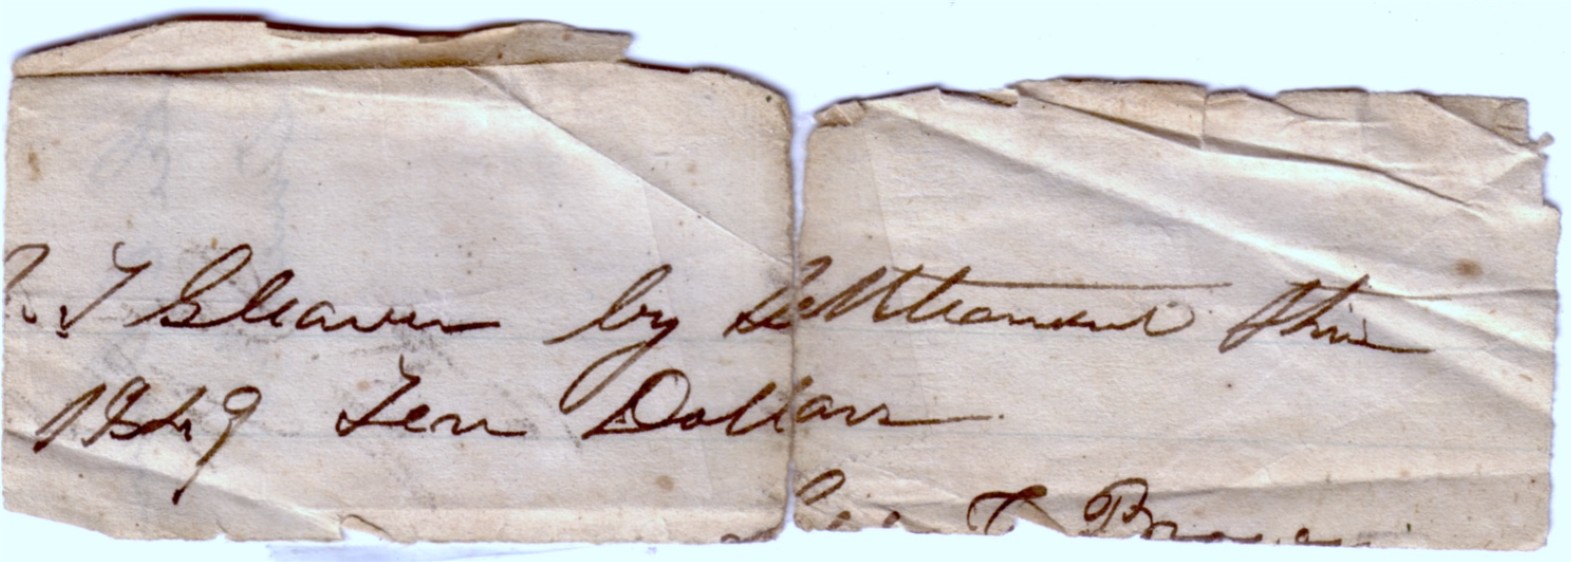 T Gleaver by Settlement this
1849 Ten Dollars
Geo T Brown